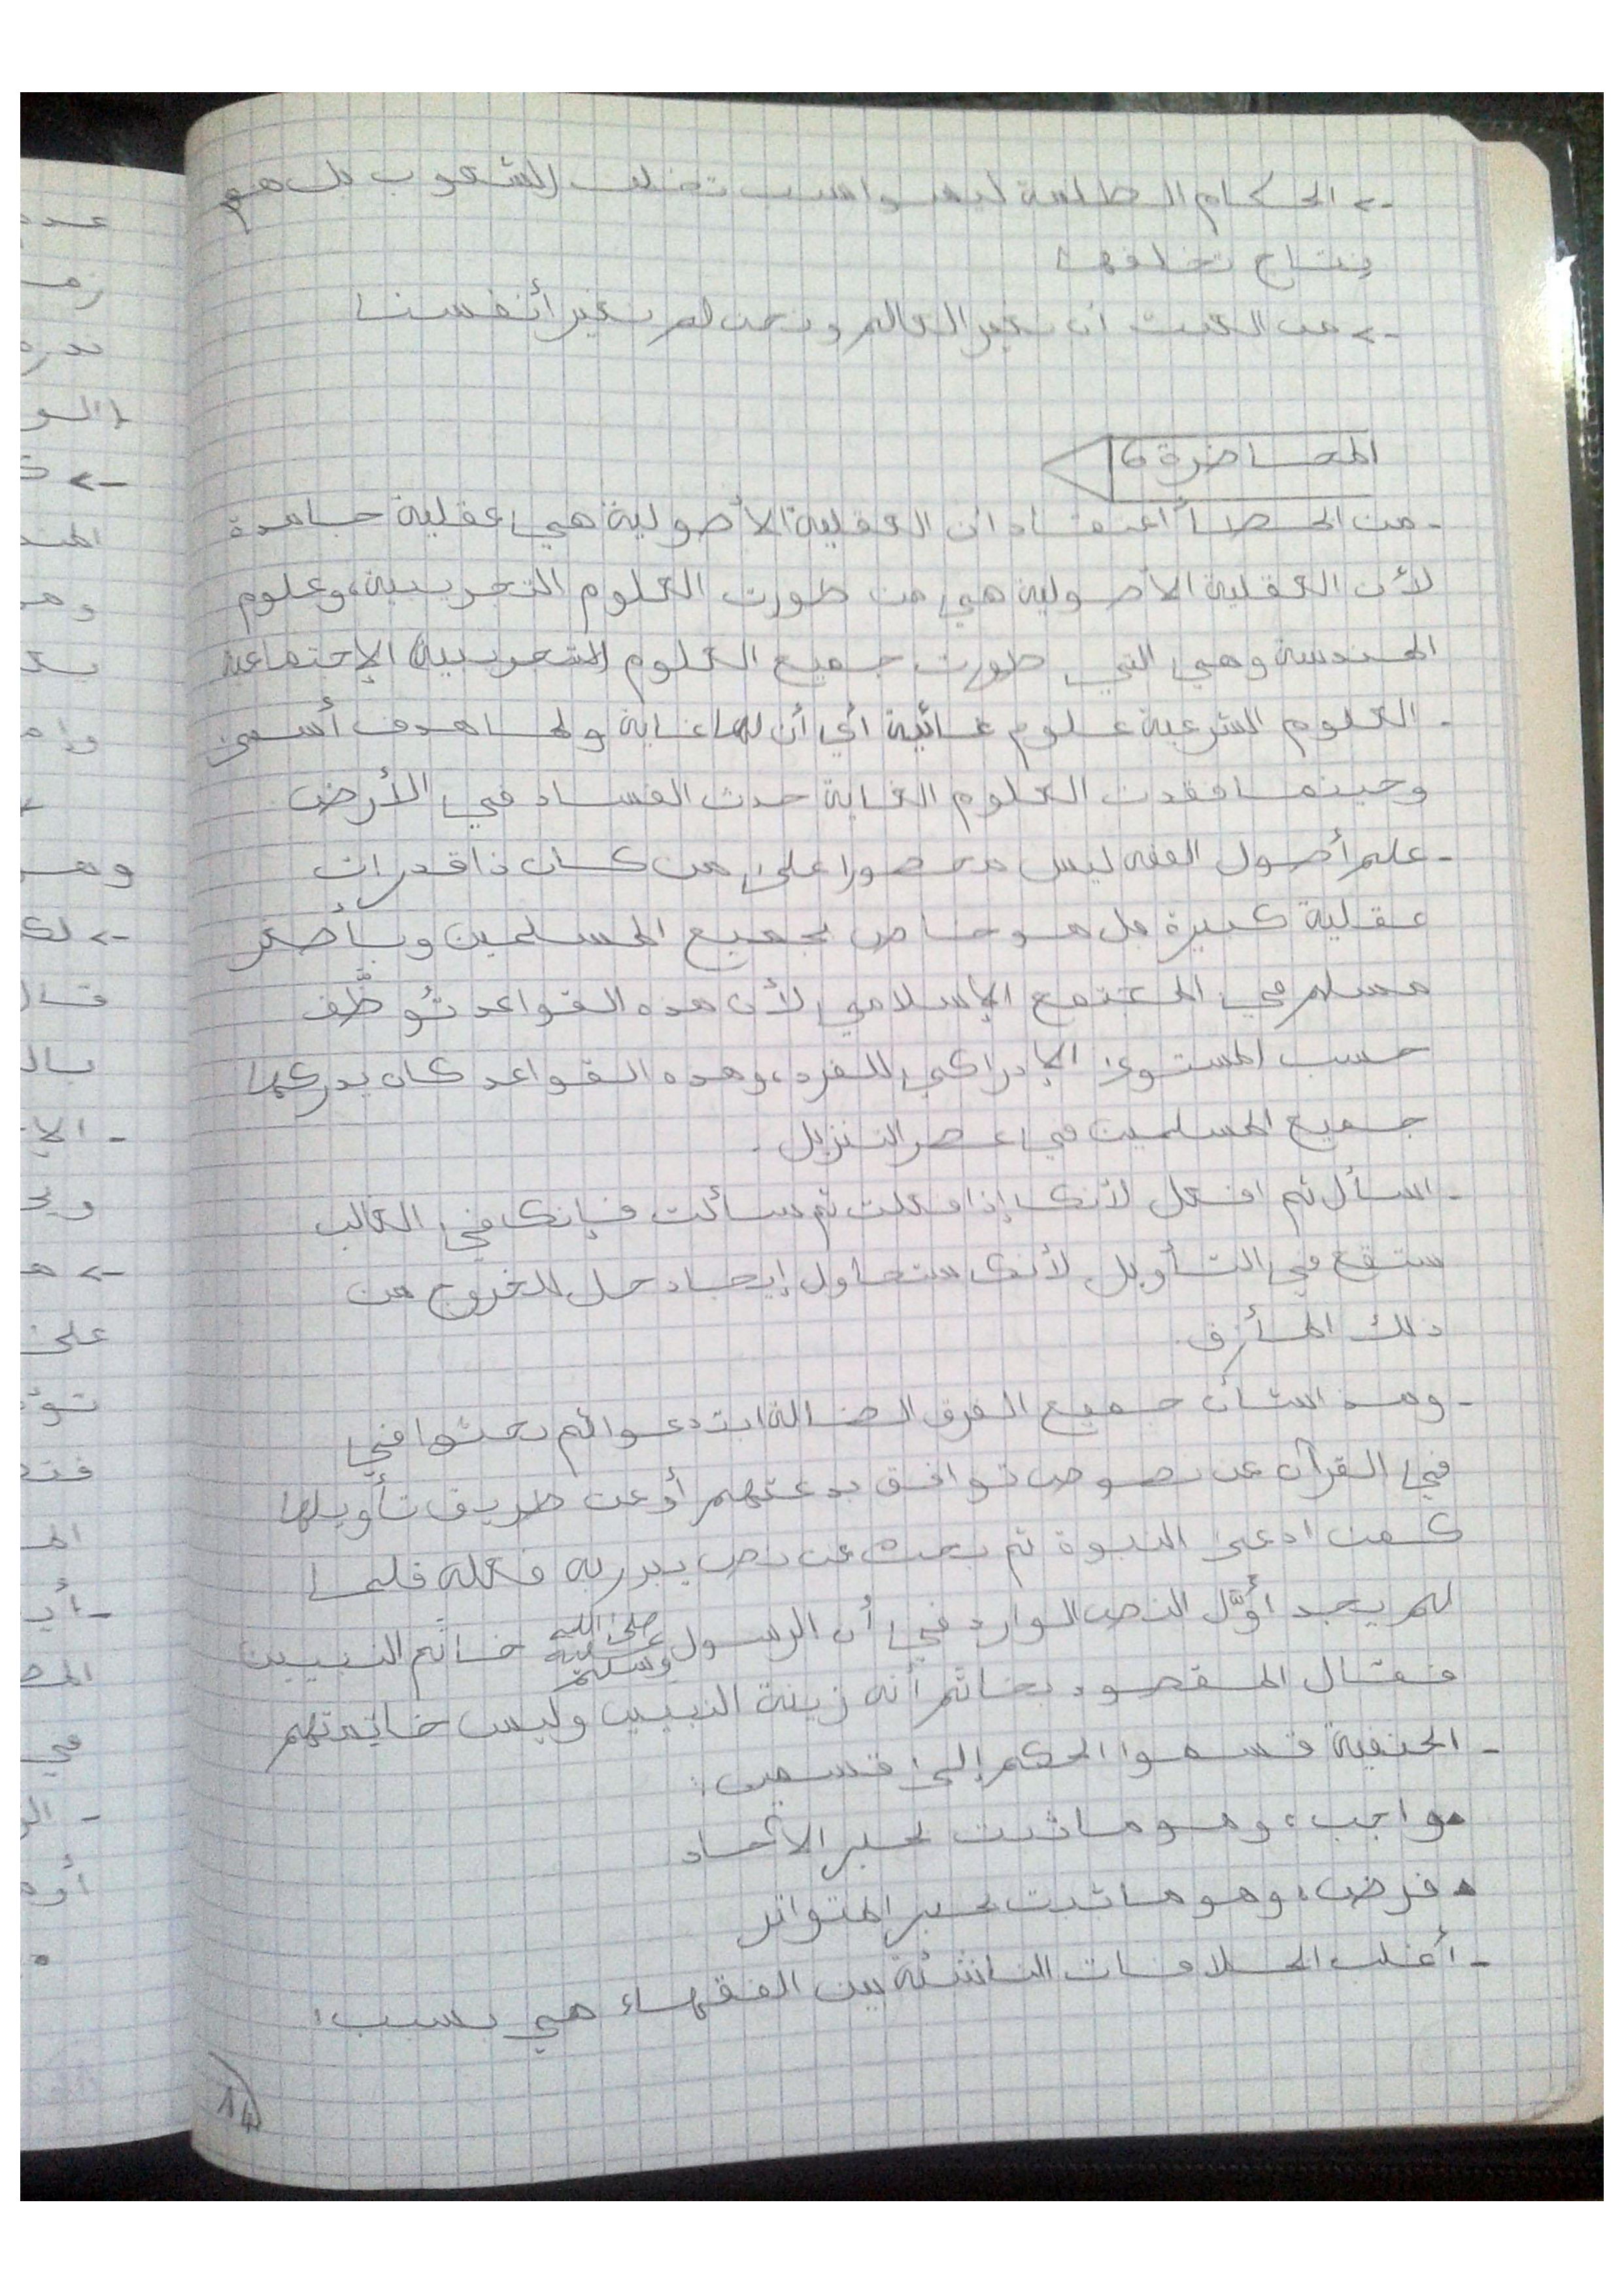 -> الحكام الظلمة ليسوا سبب تخلف الشعوب بل هم
نتاج تخلفها
-> من العبث أن نغير العالم ونحن لم نغير أنفسنا
المحاضرة 6
- من الخطأ اعتقاد أن العقلية الأصولية هي عقلية جامدة
لأن العقلية الأصولية هي من طورت العلوم التجريبية، وعلوم
الهندسة وهي التي طورت جميع العلوم التجريبية الإجتماعية
- العلوم الشرعية علوم غائية أي أن لها غاية ولها هدف أسمى
وحينما فقدت العلوم الغاية حدث الفساد في الأرض
- علم أصول الفقه ليس محصورا على من كان ذا قدرات
عقلية كبيرة بل هو خاص بجميع المسلمين وبأصغر
مسلم في المجتمع الإسلامي لأن هذه القواعد تُوظَّف
حسب المستوى الإدراكي للفرد، وهذه القواعد كان يدركها
جميع المسلمين في عصر التنزيل.
- اسأل ثم افعل لأنك إذا فعلت ثم سألت فإنك في الغالب
ستقع في التأويل لأنك ستحاول إيجاد حل للخروج من
ذلك المأزق.
- وهذا شأن جميع الفرق الضالة ابتدعوا ثم بحثوا في
في القرآن عن نصوص توافق بدعتهم أو عن طريق تأويلها
كمن ادعى النبوة ثم بحث عن نص يبرر به فعله فلما
لم يجد أوَّل النص الوارد في أن الرسول صلى الله عليه وسلم خاتم النبيين
فقال المقصود بخاتم أنه زينة النبيين وليس خاتمتهم
- الحنفية قسموا الحكم إلى قسمين:
• واجب، وهو ما ثبت بخبر الآحاد
• فرض، وهو ما ثبت بخبر المتواتر
- أغلب الخلافات الناشئة بين الفقهاء هي بسبب:
14
عدم
-> لك
- الإ
على
في